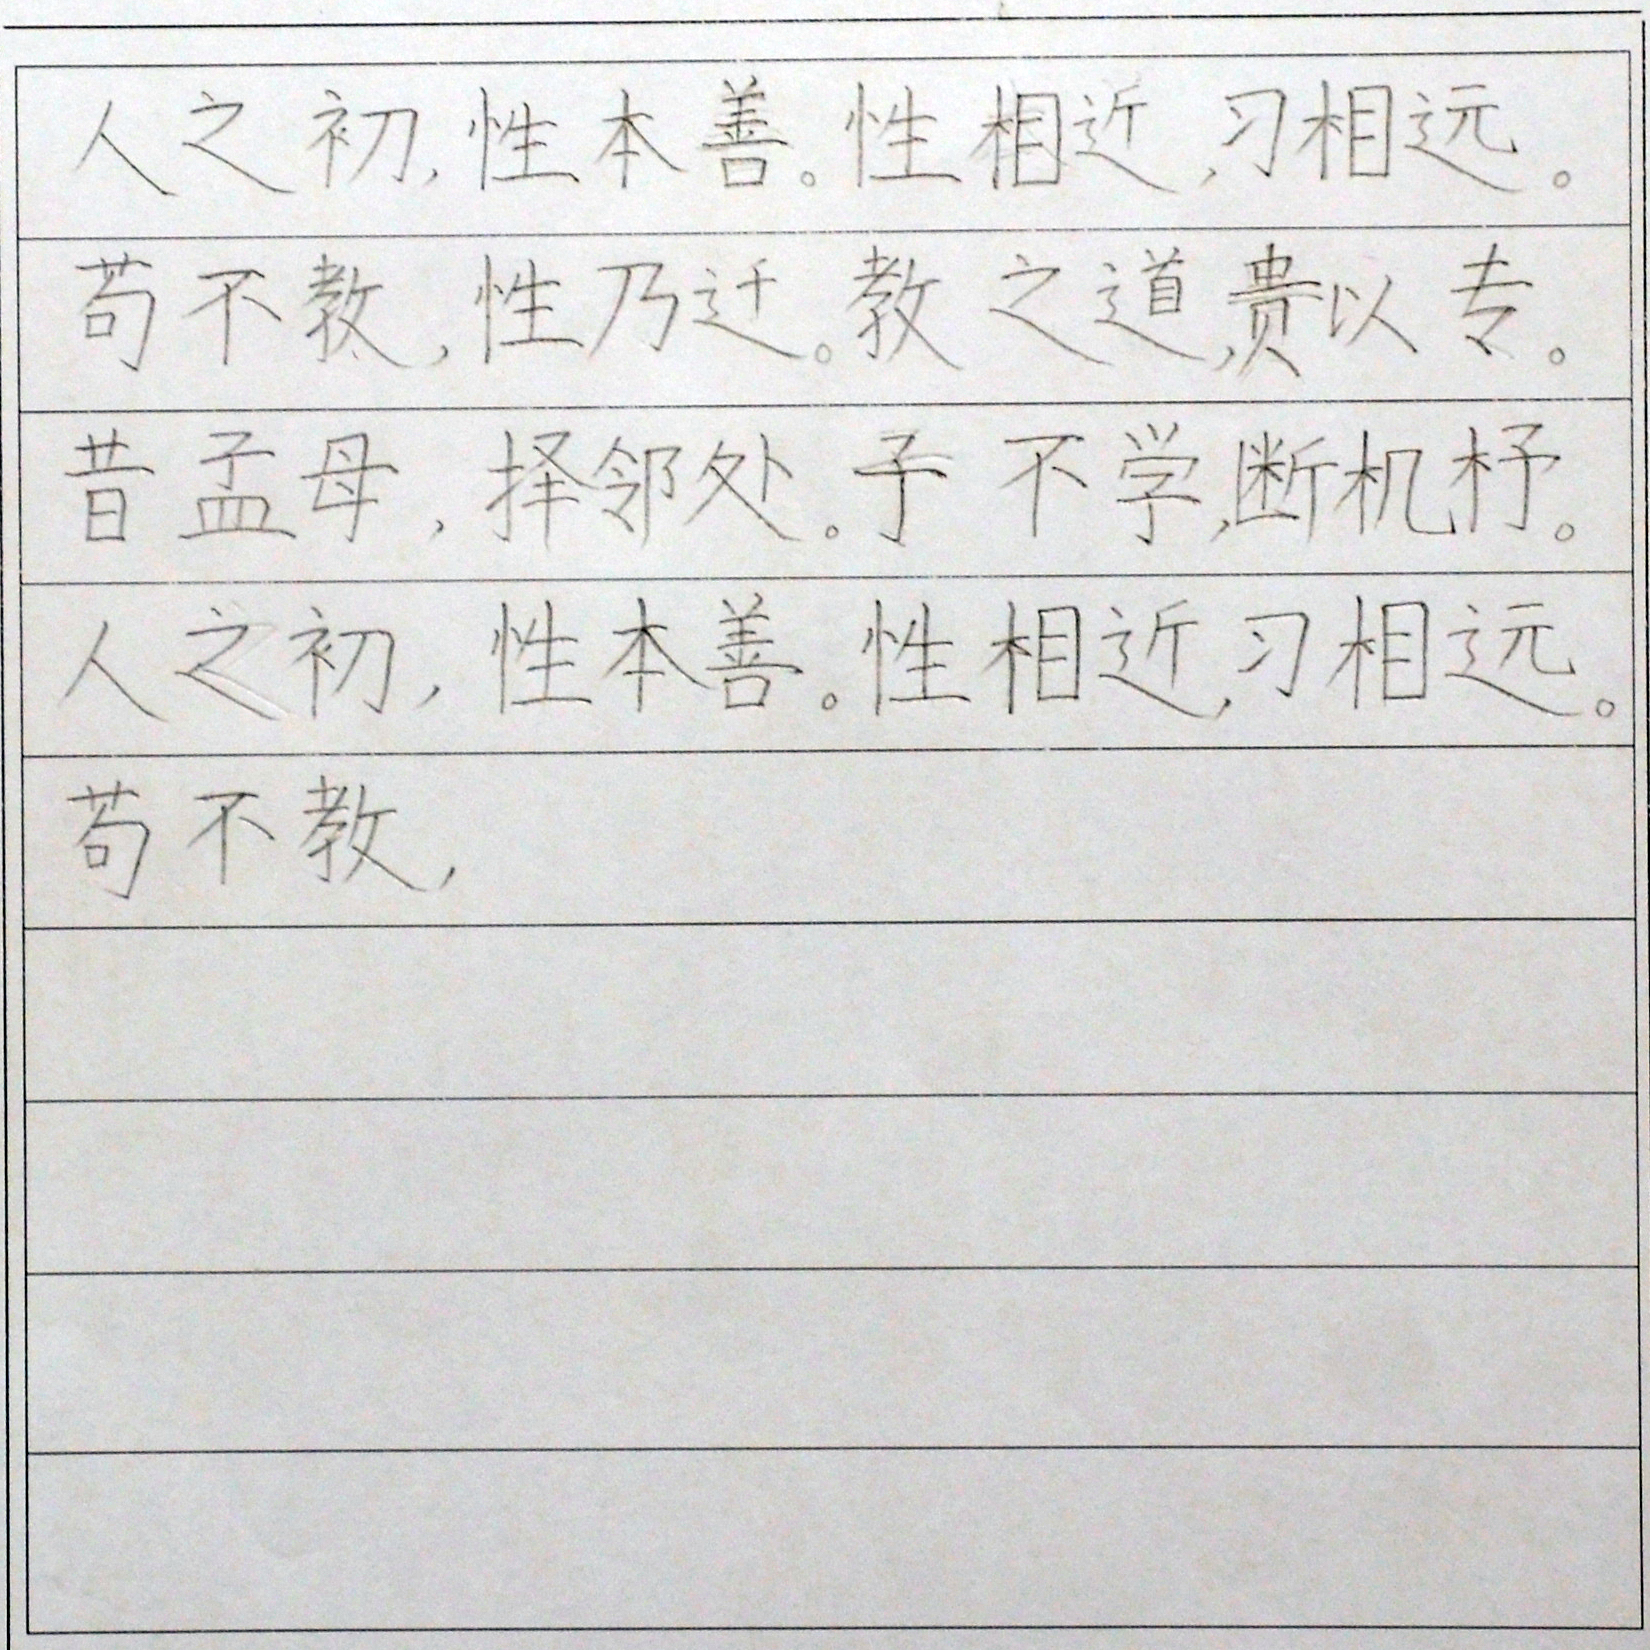 人之初,性本善。性相近,习相远。
苟不教,性乃迁。教之道,贵以专。
昔孟母,择邻处。子不学,断机杼。
人之初,性本善。性相近,习相远。
苟不教,